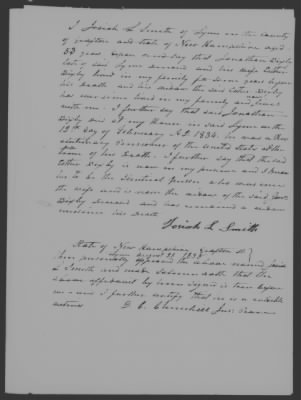 I Josiah L Smith of Lyme in the County
of Grafton and State of New Hampshire aged
53 years depose and say that Jonathan Bixby
late of said Lyme deceased and his wife Esther
Bixby lived in my family for some years before
his death and his widow the said Esther Bixby
has ever since lived in my family and lives
with me. I further say that said Jonathan
Bixby died at my House in said Lyme on the
12th day of February A.D. 1834. he was a Rev
olutionary Pensioner of the United States at the
time of his Death. I further say that the said
Esther Bixby is now in my presence and I know
her to be the identical person who was once
the wife and is now the widow of the said Jona.
Bixby deceased and has remained a widow
ever since his Death
Josiah L Smith
State of New Hampshire Grafton SS
Lyme August 21 1838
then personally appeared the above named Josiah
L Smith and made Solemn oath that the
above affidavit by him signed is true before
me and I further certify that he is a credible
witness
D. C. Churchill Jus. Peace